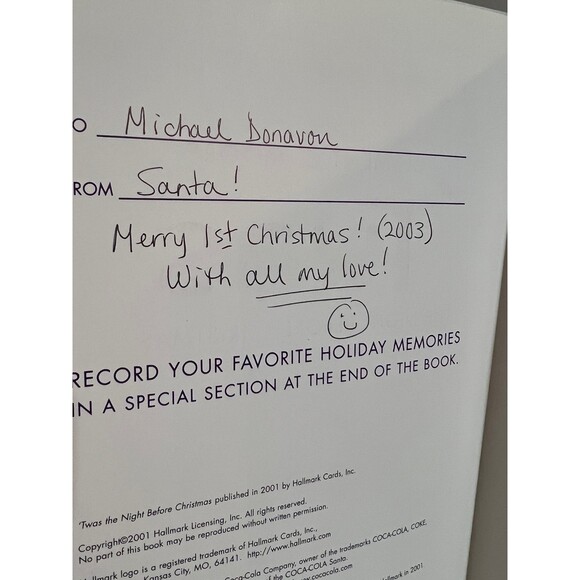 O Michael Donavon
ROM Santa!
Merry 1st Christmas! (2003)
With all my love!
RECORD YOUR FAVORITE HOLIDAY MEMORIES
IN A SPECIAL SECTION AT THE END OF THE BOOK.
'Twas the Night Before Christmas published in 2001 by Hallmark Cards, Inc.
Copyright©2001 Hallmark Licensing, Inc. All rights reserved.
No part of this book may be reproduced without written permission.
allmark logo is a registered trademark of Hallmark Cards, Inc.,
Kansas City, MO, 64141. http://www.hallmark.com
Coca-Cola Company, owner of the trademarks COCA-COLA, COKE,
of the COCA-COLA Santa.
.cocacola.com
allmark in 2001